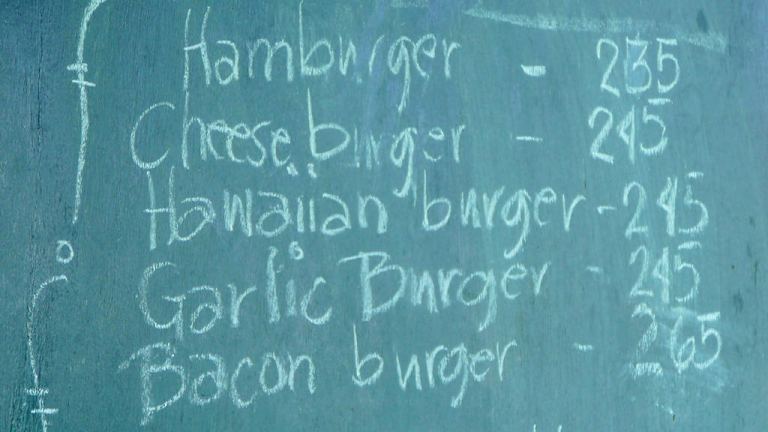 Hamburger - 235
Cheese burger - 245
Hawaiian burger - 245
Garlic Burger - 245
Bacon burger - 265